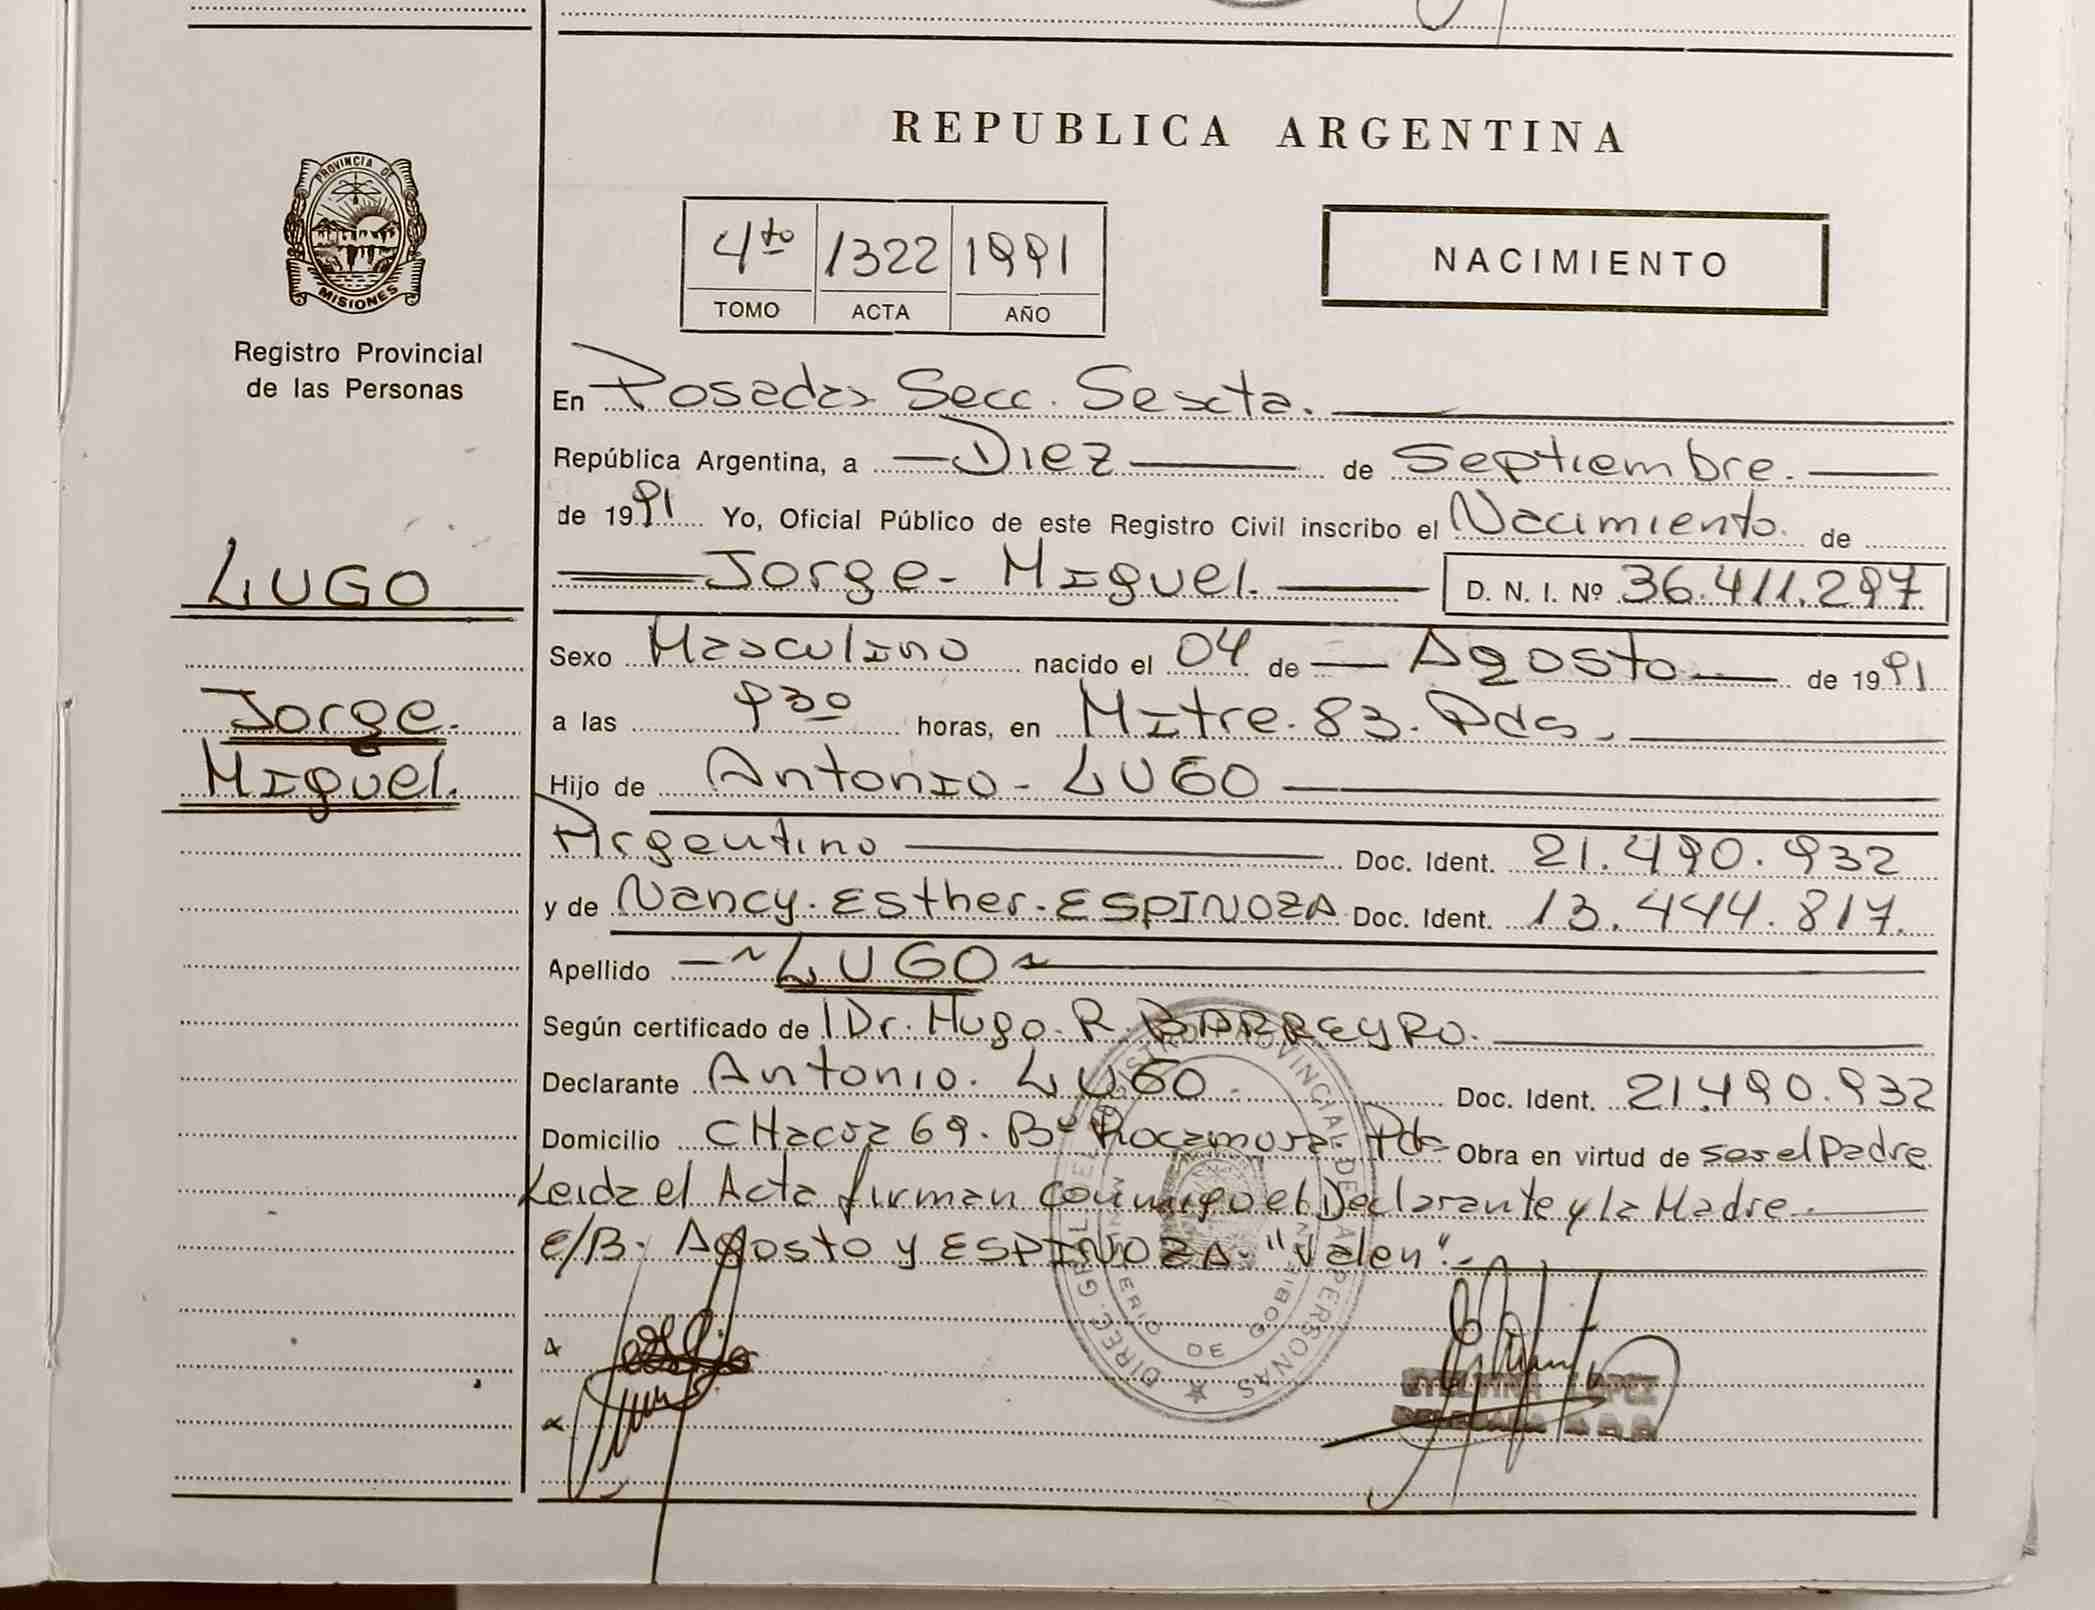 REPUBLICA ARGENTINA
PROVINCIA DE
MISIONES
Registro Provincial
de las Personas
4to 1322 1991
TOMO ACTA AÑO
NACIMIENTO
En Posadas Secc. Sexta.
República Argentina, a Diez de Septiembre.
de 1991 Yo, Oficial Público de este Registro Civil inscribo el Nacimiento. de
LUGO
Jorge. Miguel. D. N. I. Nº 36.411.297
Sexo Masculino nacido el 04 de Agosto de 1991
Jorge.
a las 930 horas, en Mitre. 83. Pdas.
Miguel.
Hijo de Antonio - LUGO
Argentino Doc. Ident. 21.490.932
y de Nancy. Esther. ESPINOZA. Doc. Ident. 13.444.817.
Apellido LUGO
Según certificado de Dr. Hugo. R. BARREYRO.
Declarante Antonio. LUGO. Doc. Ident. 21.490.932
Domicilio CHacra 69. Bº Rocamora. Pdas Obra en virtud de ser el Padre
Leida el Acta firman conmigo el Declarante y la Madre
e/B. Agosto y ESPINOZA. "Valen".
DIREC. GRAL. DEL REGISTRO PROVINCIAL DE LAS PERSONAS
MINISTERIO DE GOBIERNO
LOPEZ
DELEGADA